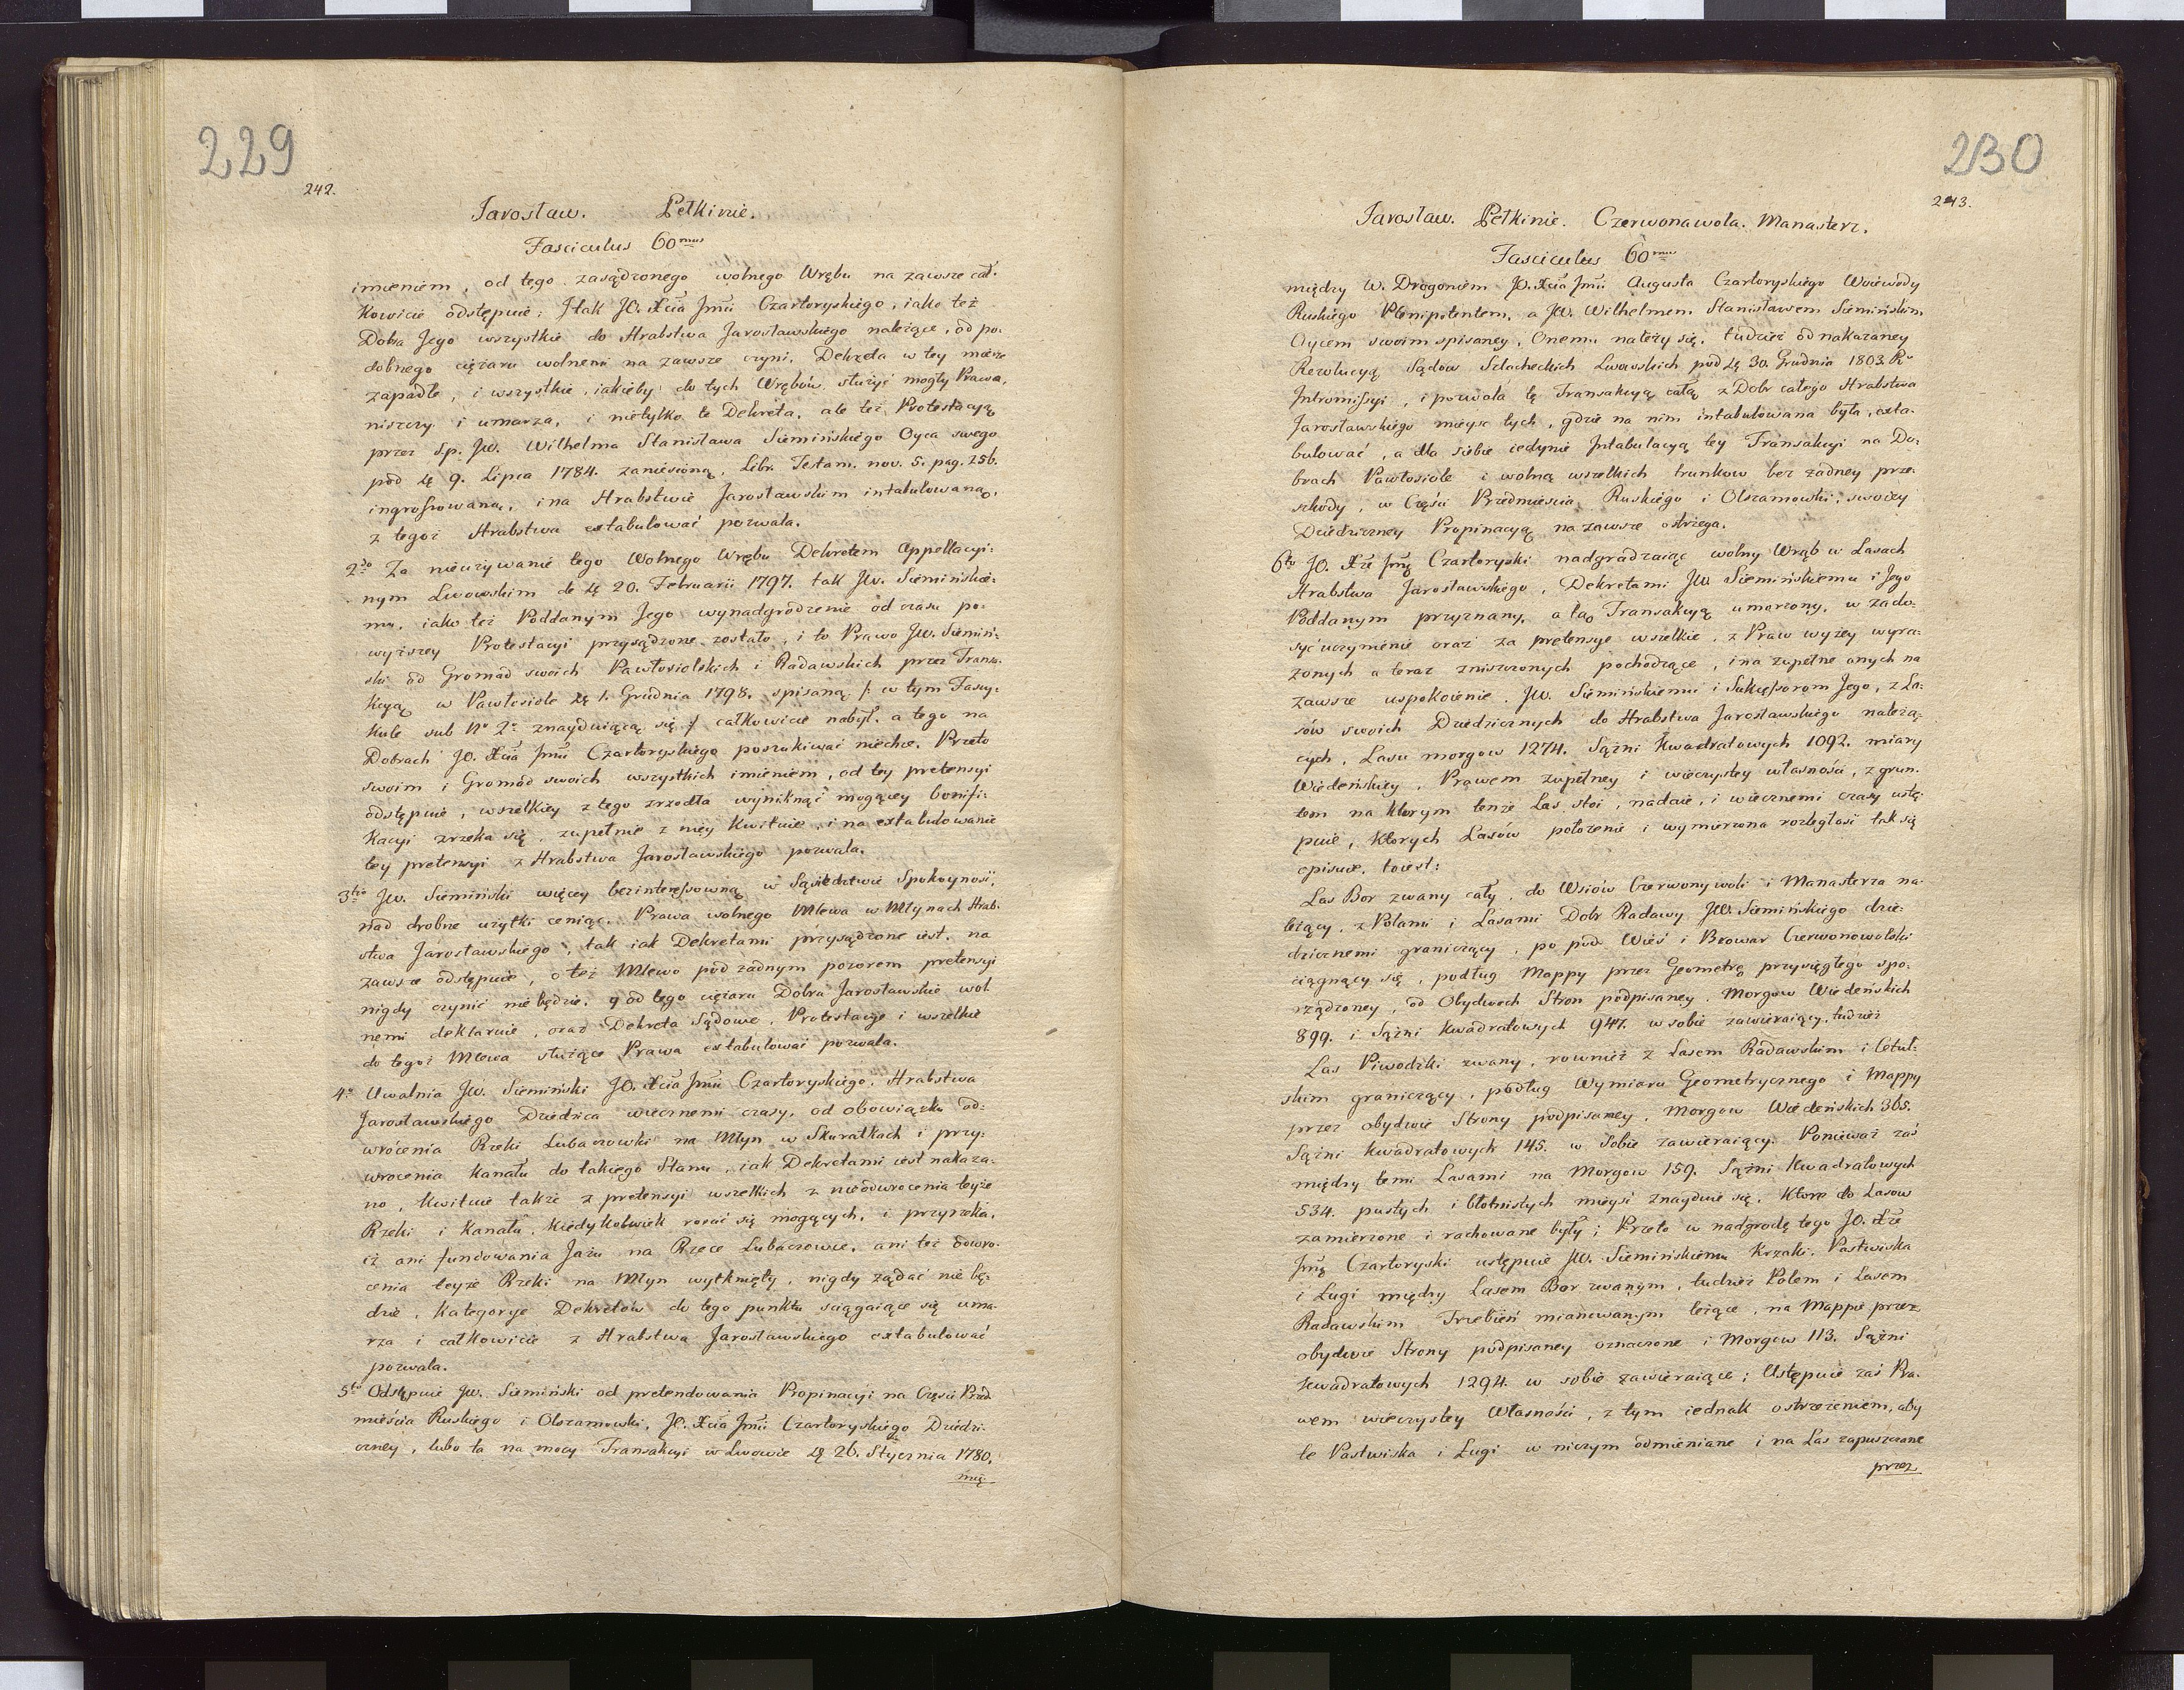 229
242.
Jarosław. Pełkinie.
Fasciculus 60mus
imieniem, od tego zasądzonego wolnego Wrębu na zawsze cał-
kowicie odstępuie; I tak JO. Xcia Jmci Czartoryskiego, iako też
Dobra Jego wszystkie do Hrabstwa Jarosławskiego należące, od po-
dobnego ciężaru wolnemi na zawsze czyni, Dekreta w tey mierze
zapadłe, i wszystkie, iakieby do tych Wrębów służyć mogły Prawa,
niszczy i umarza, i nietylko te Dekreta, ale też Protestacyą
przez Sp. JW. Wilhelma Stanisława Siemińskiego Oyca swego
pod dę 9. Lipca 1784. zaniesioną, Libr. Testam. nov. 5. pag. 256.
ingrossowaną, i na Hrabstwie Jarosławskim intabulowaną,
z tegoż Hrabstwa extabulować pozwala.
2do Za nieużywanie tego Wolnego Wrębu Dekretem Appellacyi-
nym Lwowskim de dę 20. Februarii 1797. tak JW. Siemińskie-
mu, iako też Poddanym Jego wynadgrodzenie od czasu po-
wyższey Protestacyi przysądzone zostało, i to Prawo JW. Siemiń-
ski od Gromad swoich Pawłosiolskich i Radawskich przez Transa-
kcyą w Pawłosiole dę 1. Grudnia 1798. spisaną /: w tym Fascy-
kule sub No 2o znayduiącą się :/ całkowicie nabył, a tego na
Dobrach JO. Xcia Jmci Czartoryskiego poszukiwać niechce. Przeto
swoim i Gromad swoich wszystkich imieniem, od tey pretensyi
odstępuie, wszelkiey z tego zrzodła wyniknąć mogącey bonifi-
kacyi zrzeka się, zupełnie z niey kwituie, i na extabulowanie
tey pretensyi z Hrabstwa Jarosławskiego pozwala.
3tio JW. Siemiński więcey bezinteressowną w Sąsiedztwie Spokoyność,
nad drobne użytki ceniąc, Prawa wolnego Mlewa w Młynach Hrab-
stwa Jarosławskiego, tak iak Dekretami przysądzone iest, na
zawsze odstępuie, o też Mlewo pod żadnym pozorem pretensyi
nigdy czynić nie będzie, y od tego ciężaru Dobra Jarosławskie wol-
nemi deklaruie, oraz Dekreta Sądowe, Protestacye i wszelkie
do tegoż Mlewa służące Prawa extabulować pozwala.
4o Uwalnia JW. Siemiński JO. Xcia Jmci Czartoryskiego, Hrabstwa
Jarosławskiego Dziedzica wiecznemi czasy, od obowiązku od-
wrócenia Rzeki Lubaczowki na Młyn w Skuratkach i przy-
wrocenia Kanału do takiego Stanu, iak Dekretami iest nakaza-
no, kwituie także z pretensyi wszelkich z nieodwrocenia teyże
Rzeki i Kanału, kiedykolwiek rościć się mogących, i przyrzeka,
iż ani fundowania Jazu na Rzece Lubaczowce, ani też dowro-
cenia teyże Rzeki na Młyn wytknięty, nigdy żądać nie bę-
dzie, Kategorye Dekretów do tego punktu sciągaiące się uma-
rza i całkowicie z Hrabstwa Jarosławskiego extabulować
pozwala.
5to Odstępuie JW. Siemiński od pretendowania Propinacyi na Części Przed-
mieścia Ruskiego i Olszanowski, JO. Xcia Jmci Czartoryskiego Dziedzi-
czney, lubo ta na mocy Transakcyi w Lwowie dę 26. Stycznia 1780.
mię-
230
243.
Jarosław. Pełkinie. Czerwonawola. Manasterz.
Fasciculus 60mus
między W. Drogoniem JO. Xcia Jmci Augusta Czartoryskiego Woiewody
Ruskiego Plenipotentem, a JW. Wilhelmem Stanisławem Siemińskim
Oycem swoim spisaney, Onemu należy się, tudzież od nakazaney
Rezolucyą Sądow Szlacheckich Lwowskich pod dę 30. Grudnia 1803. Ru
Intromissyi, i pozwala tę Transakcyą całą z Dobr całego Hrabstwa
Jarosławskiego mieysc tych, gdzie na nim intabulowana była, exta-
bulować, a dla siebie iedynie Intabulacyą tey Transakcyi na Do-
brach Pawłosiole i wolną wszelkich trunkow bez żadney prze-
szkody, w Części Przedmieścia Ruskiego i Olszanowski, swoiey
Dziedziczney Propinacyą na zawsze ostrzega.
6to JO. Xże Jmć Czartoryski nadgradzaiąc wolny Wrąb w Lasach
Hrabstwa Jarosławskiego, Dekretami JW. Siemińskiemu i Jego
Poddanym przyznany, a tą Transakcyą umorzony, w zado-
syć uczynienie oraz za pretensye wszelkie, z Praw wyżey wyra-
żonych a teraz zniszczonych pochodzące, i na zupełne onych na
zawsze uspokoienie, JW. Siemińskiemu i Sukcessorom Jego, z La-
sów swoich Dziedzicznych do Hrabstwa Jarosławskiego należą-
cych, Lasu morgow 1274. Sążni Kwadratowych 1092. miary
Wiedeńskiey, Prawem zupełney i wieczystey własności, z grun-
tem na ktorym tenże Las stoi, nadaie, i wiecznemi czasy ustę-
puie, ktorych Lasów położenie i wymierzona rozległość tak się
opisuie, toiest:
Las Bor zwany cały, do Wsiów Czerwonywoli i Manasterza na-
leżący, z Polami i Lasami Dobr Radawy JW. Siemińskiego dzie-
dzicznemi graniczący, po pod Wieś i Browar Czerwonowolski
ciągnący się, podług Mappy przez Geometrę przysięgłego spo-
rządzoney, od Obydwoch Stron podpisaney, Morgow Wiedeńskich
899. i Sążni kwadratowych 947. w sobie zawieraiący, tudzież
Las Piwodzki zwany, rownież z Lasem Radawskim i Cetul-
skim graniczący, podług Wymiaru Geometrycznego i Mappy
przez obydwie Strony podpisaney, Morgow Wiedeńskich 365.
Sążni kwadratowych 145. w Sobie zawieraiący. Ponieważ zaś
między temi Lasami na Morgow 159. Sążni Kwadratowych
534. pustych i błotnistych mieysc znayduie się, ktore do Lasow
zamierzone i rachowane były; Przeto w nadgrodę tego JO. Xże
Jmć Czartoryski ustępuie JW. Siemińskiemu Krzaki, Pastwiska
i Ługi między Lasem Bor zwanym, tudzież Polem i Lasem
Radawskim Trzebień mianowanym leżące, na Mappie przez
obydwie Strony podpisaney oznaczone i Morgow 113. Sążni
kwadratowych 1294. w sobie zawieraiące; Ustępuie zaś Pra-
wem wieczystey Własności, z tym iednak ostrzeżeniem, aby
te Pastwiska i Ługi w niczym odmieniane i na Las zapuszczone
przez